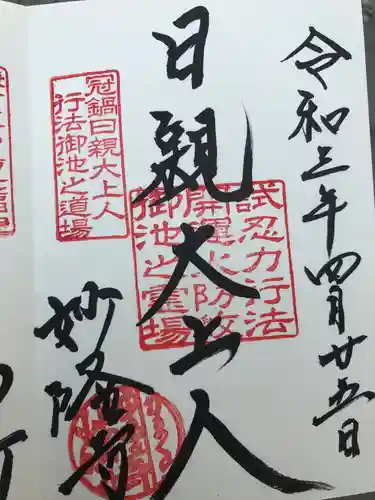 令和三年四月廿五日
日親大上人
試忍力行法
開運火防救
御池之霊場
冠鍋日親大上人
行法御池之道場
妙隆寺